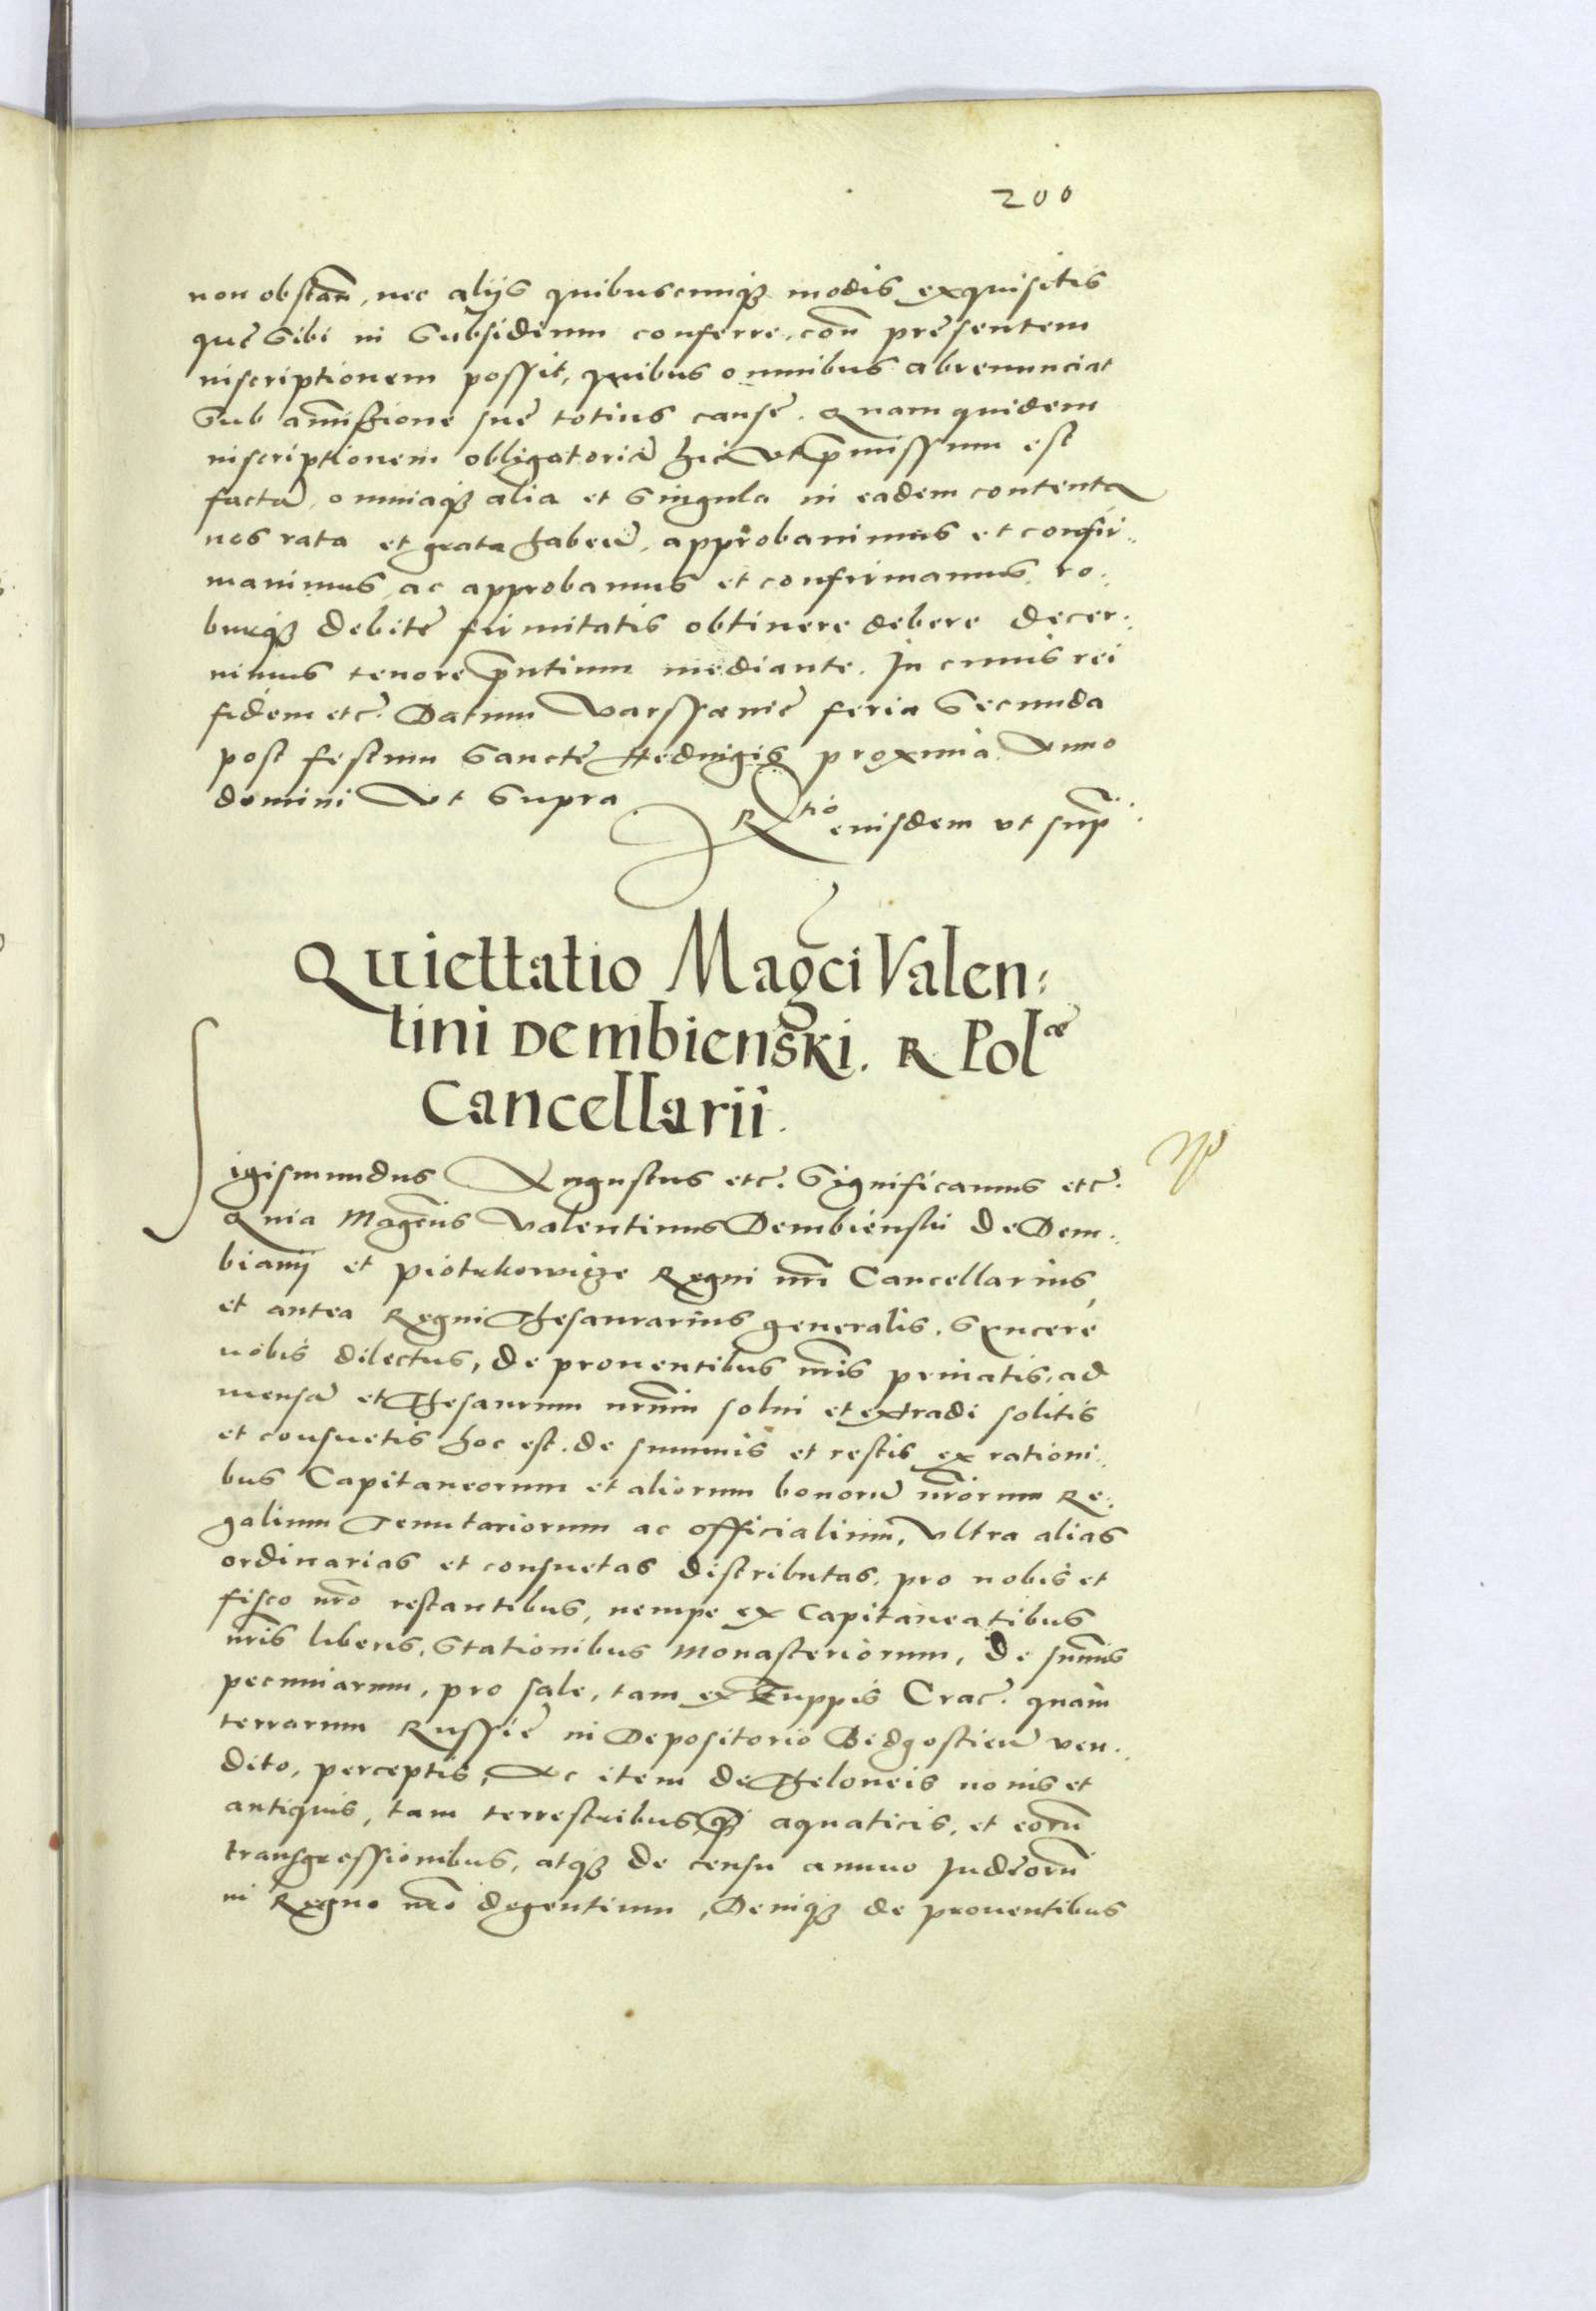 200
non obstan̄, nec alijs quibuscunqȝ modis exquisitis
quę sibi in subsidium conferre, con̄ pręsentem
inscriptionem possit, quibus omnibus abrenunciat
sub amissione suę totius causę. Quam quidem
inscriptionem obligatoriā hic ut p̄missum est
factā, omniaqȝ alia et singula in eadem contenta
nos rata et grata habeñ, approbauimus et confir:
mauimus, ac approbamus et confirmamus, ro:
burqȝ debitę firmitatis obtinere debere decer:
nimus tenore p̄ntium mediante. In cuius rei
fidem etc. Datum Varssauię feria Secunda
post festum Sanctę Heduigis proxima Anno
domini Vt Supra
Rtio eiusdem vt sup̄
Quiettatio Magci Valen:
tini Dembienski. R Polæ
Cancellarii.
Sigismundus Augustus etc. Significamus etc.
Quia Magcus Valentinus Dembienski de Dem:
biany et Piotrkowicze Regni nr̄i Cancellarius,
et antea Regni Thesaurarius generalis, Syncere
nobis dilectus, de prouentibus nr̄is priuatis, ad
mensā et Thesaurum nr̄um solui et extradi solitis
et consuetis hoc est, de summis et restis ex rationi:
bus Capitaneorum et aliorum bonorū nr̄orum Re:
galium Tenutariorum ac officialium, Vltra alias
ordinarias et consuetas distributas, pro nobis et
fisco nr̄o restantibus, nempe ex Capitaneatibus
nr̄is liberis, Stationibus Monasteriorum, de sum̄is
pecuniarum, pro sale, tam ex Zuppis Crac. quam
terrarum Russię in Depositorio Bidgosticū ven:
dito, perceptis, Ac item de Theloneis nouis et
antiquis, tam terrestribus, q̄ aquaticis, et eorū
transgressionibus, atqȝ de censu annuo Iudęorū
in Regno nr̄o degentium, Deniqȝ de prouentibus